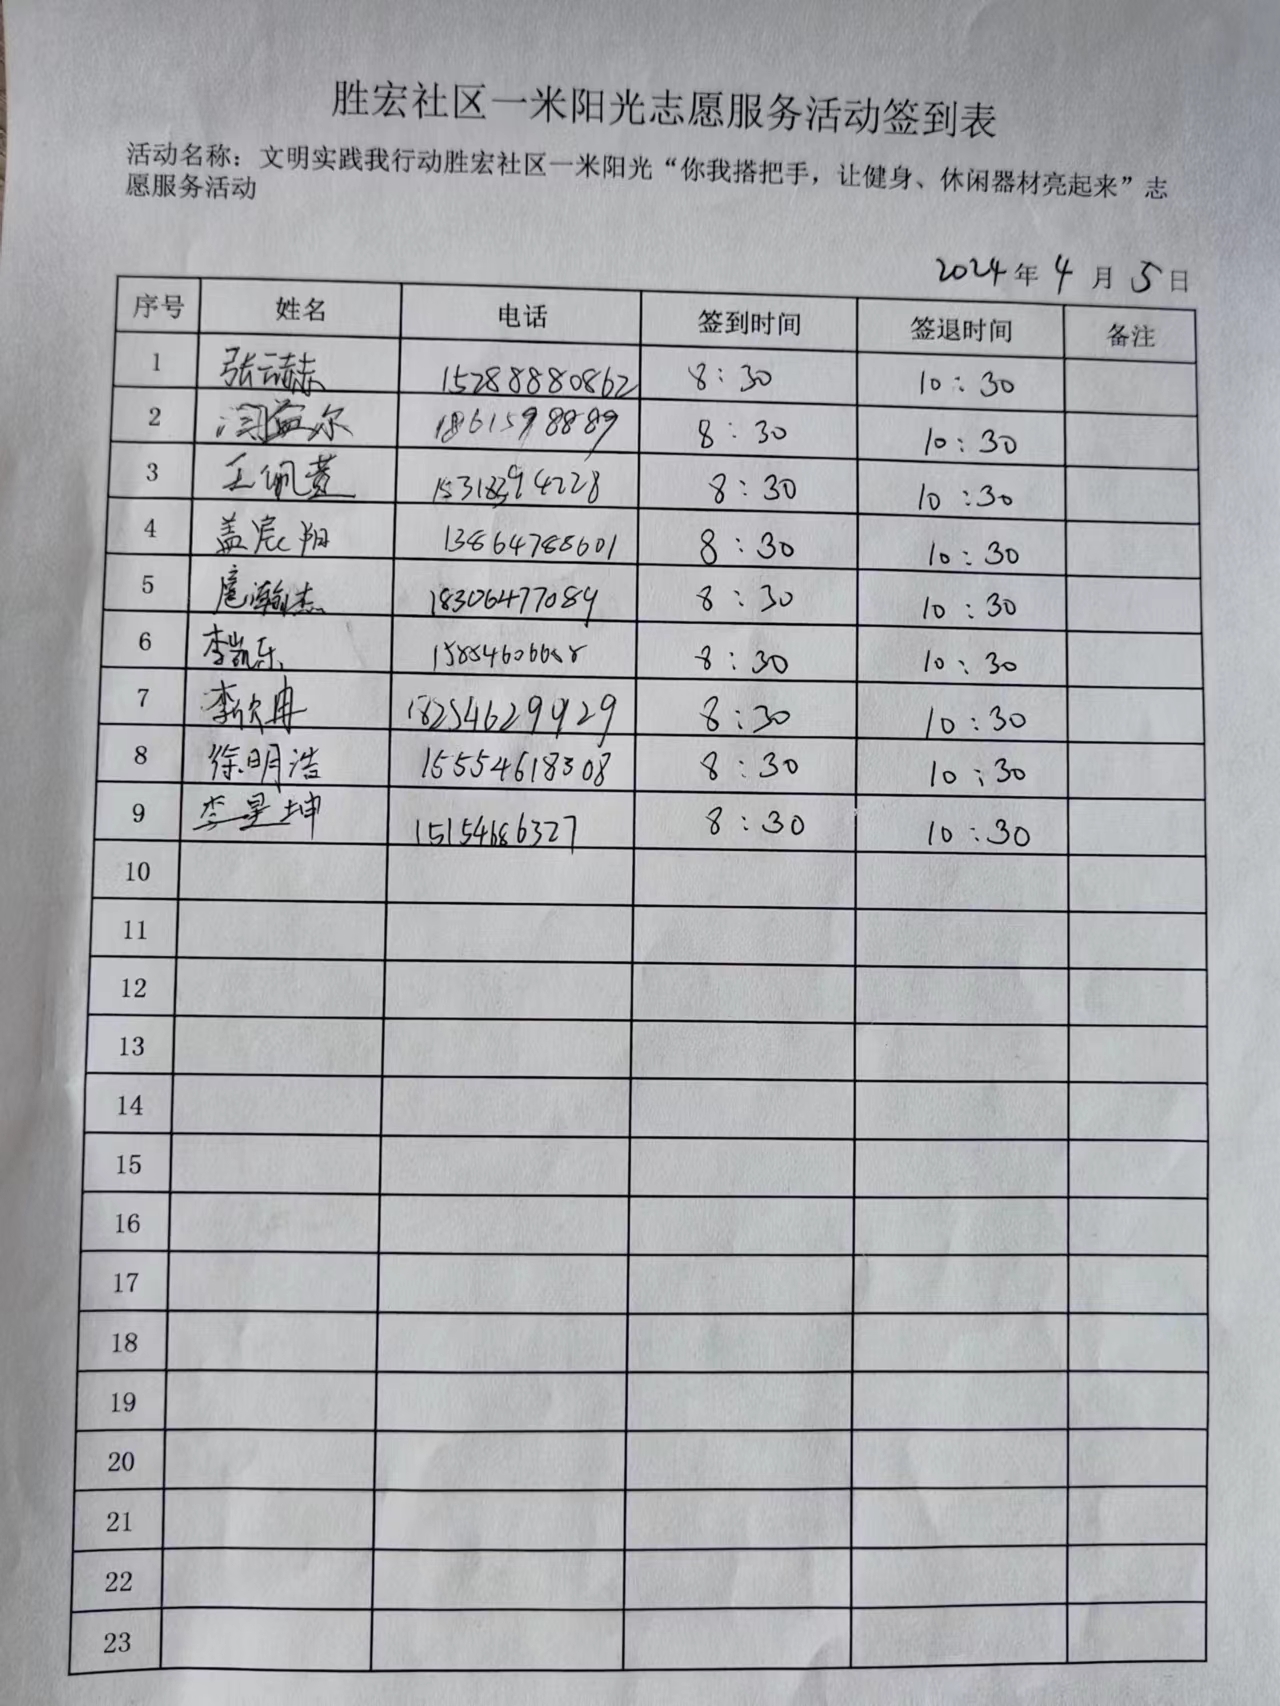 胜宏社区一米阳光志愿服务活动签到表
活动名称：文明实践我行动胜宏社区一米阳光“你我搭把手，让健身、休闲器材亮起来”志
愿服务活动
2024年4月5日
序号 姓名 电话 签到时间 签退时间 备注
1 张云赫 15288880862 8:30 10:30
2 18615988889 8:30 10:30
3 王佩萱 8:30 10:30
4 盖宸阳 13864788601 8:30 10:30
5 扈瀚杰 18306477089 8:30 10:30
6 李凯东 8:30 10:30
7 李欣冉 18254629929 8:30 10:30
8 徐明浩 15554618308 8:30 10:30
9 李星坤 15154686327 8:30 10:30
10
11
12
13
14
15
16
17
18
19
20
21
22
23